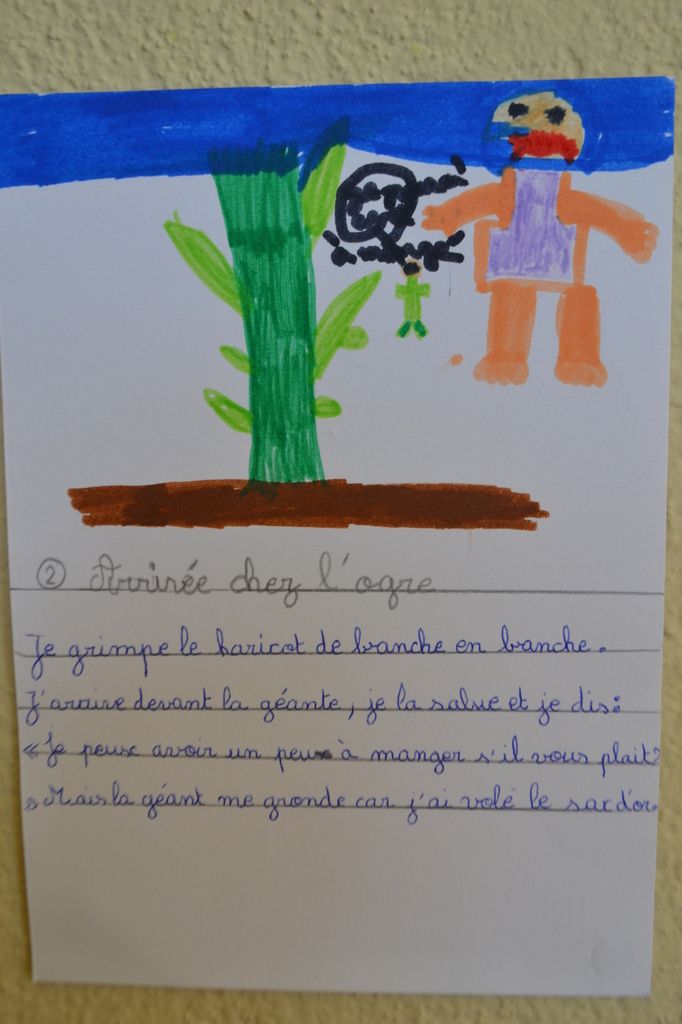 à mangé
② Arrivée chez l'ogre
Je grimpe le haricot de branche en branche.
J'arrive devant la géante, je la salue et je dis:
« Je peux avoir un peu à manger s'il vous plait?
» Mais la géant me gronde car j'ai volé le sac d'or.